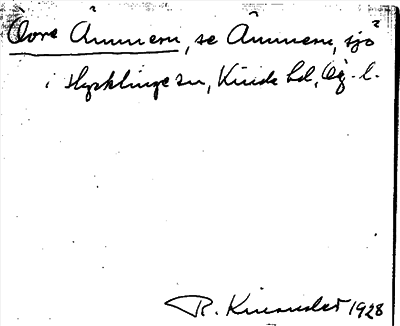 Övre Ämmern, se Ämmern, sjö
i Hycklinge sn, Kinda hd, Ög. l.
R. Kinander 1928